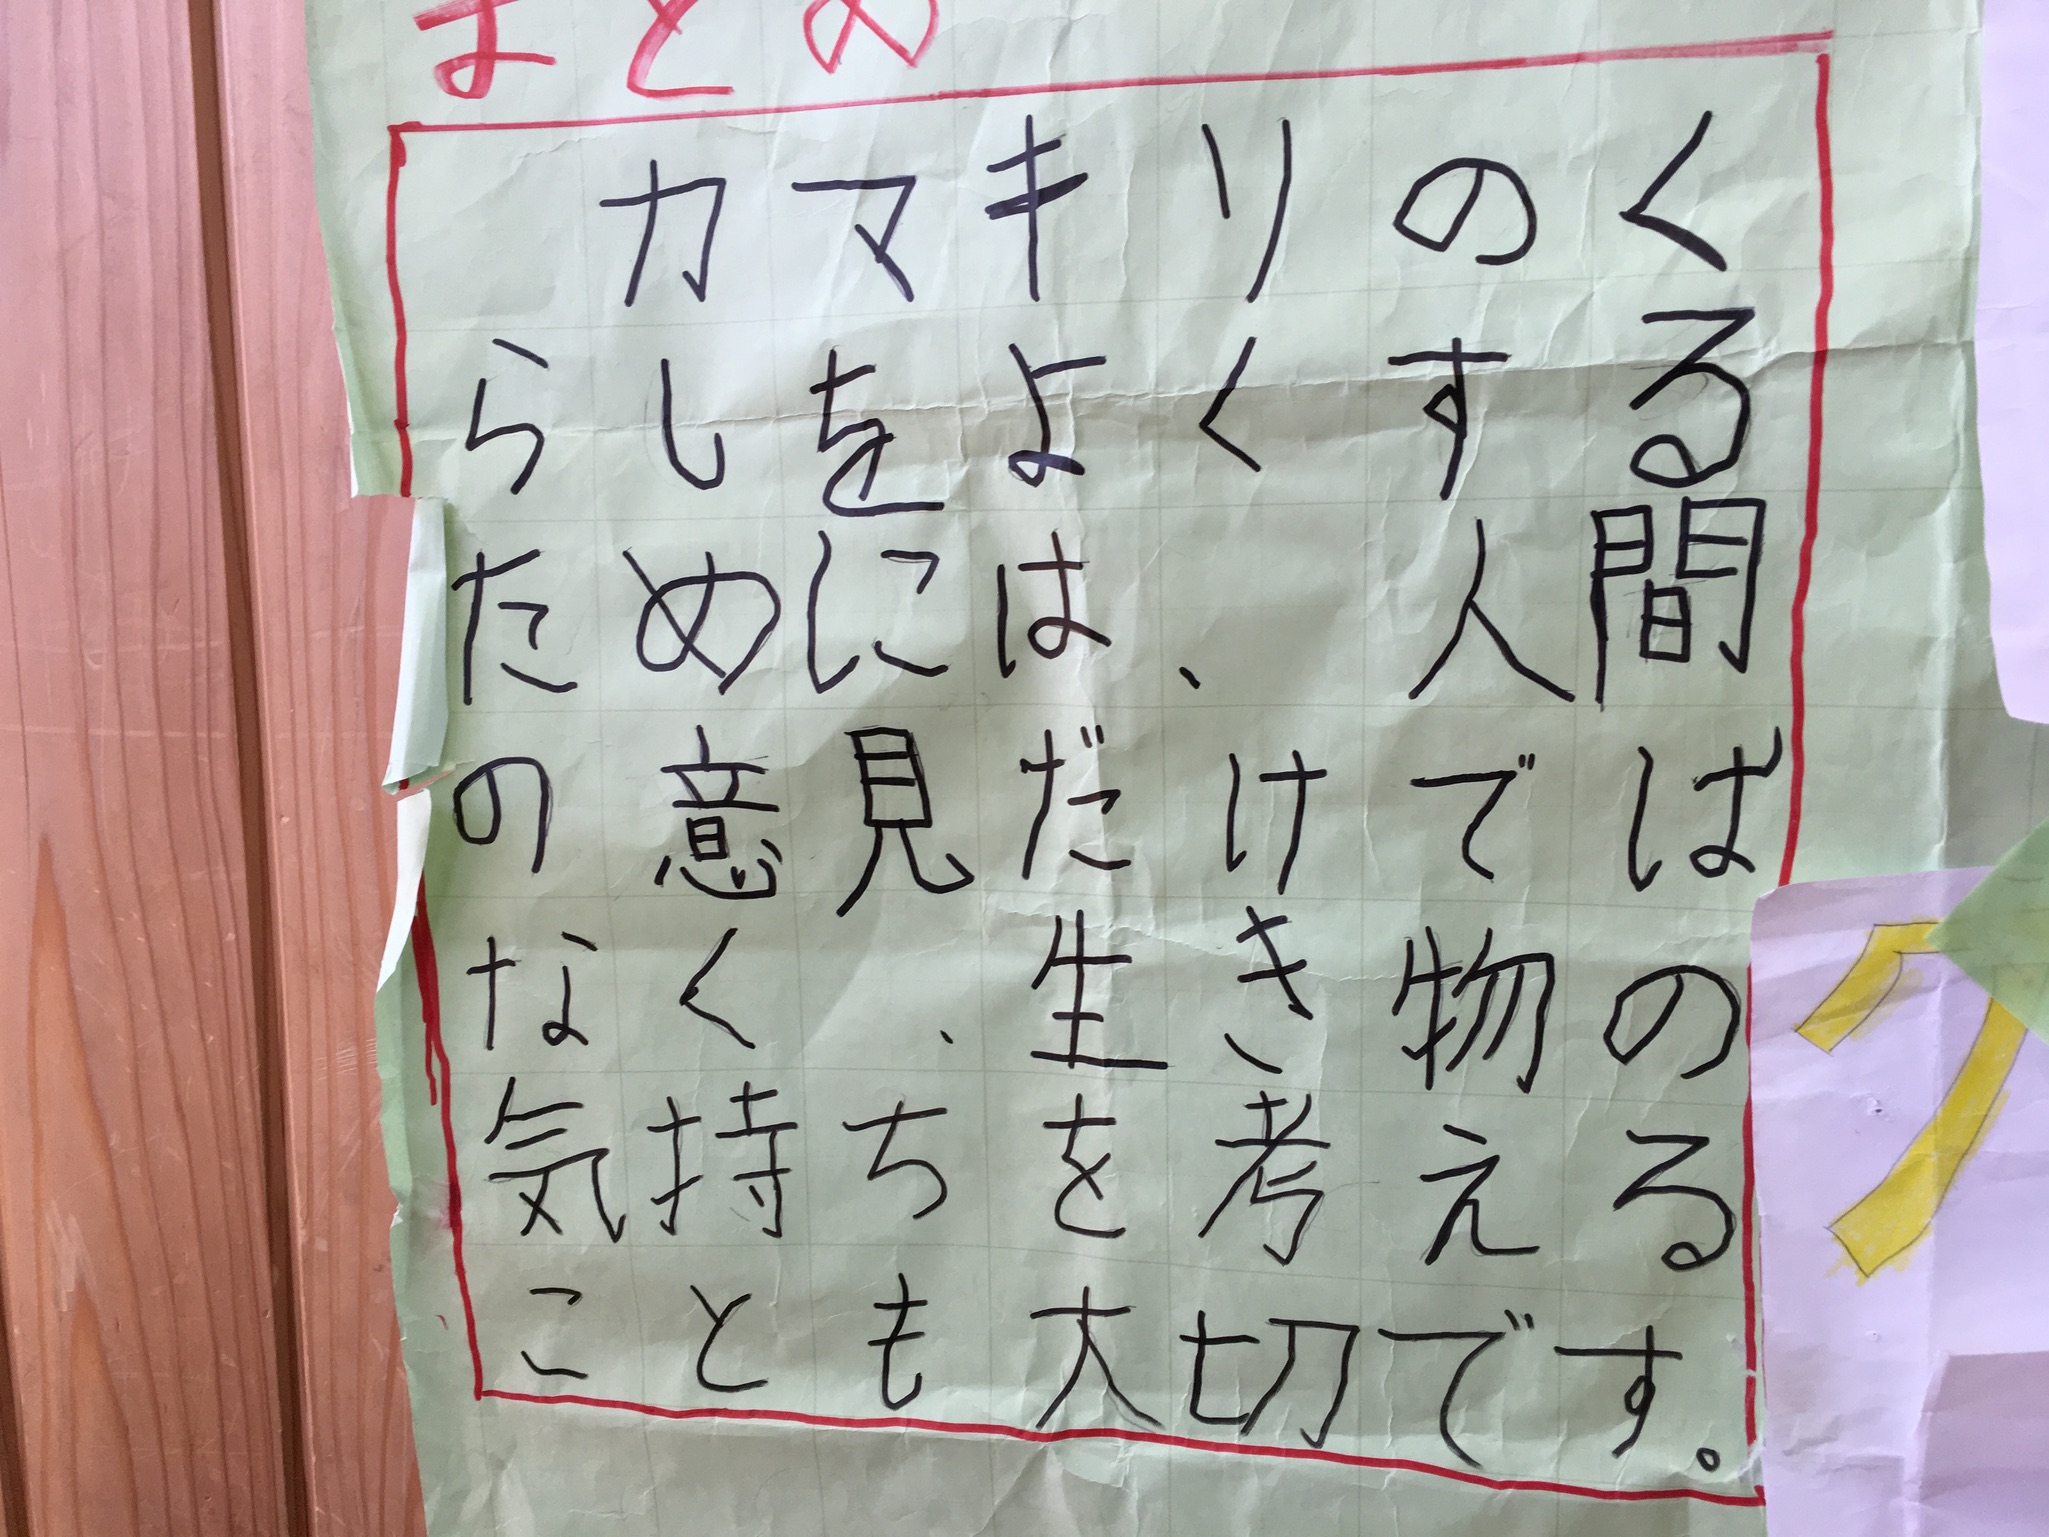 まとめ
カマキリのく
らしをよくする
ためには、人間
の意見だけでは
なく、生き物の
気持ちを考える
ことも大切です。